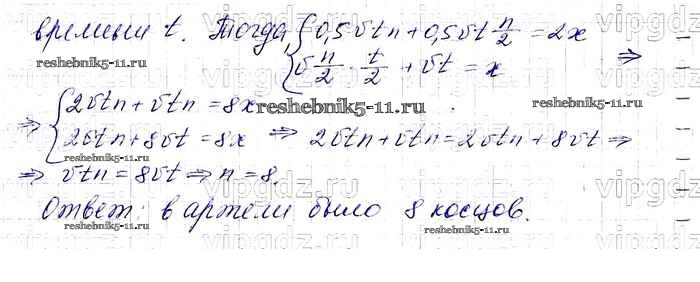 времени t. Тогда, {0,5vtn + 0,5vt n/2 = 2x
{v n/2 · t/2 + vt = x ⇒
reshebnik5-11.ru reshebnik5-11.ru
⇒ {2vtn + vtn = 8x reshebnik5-11.ru
{2vtn + 8vt = 8x ⇒ 2vtn + vtn = 2vtn + 8vt ⇒
reshebnik5-11.ru reshebnik5-11.ru
⇒ vtn = 8vt ⇒ n = 8.
reshebnik5-11.ru
Ответ: в артели было 8 косцов.
reshebnik5-11.ru reshebnik5-11.ru
vipgdz.ru vipgdz.ru